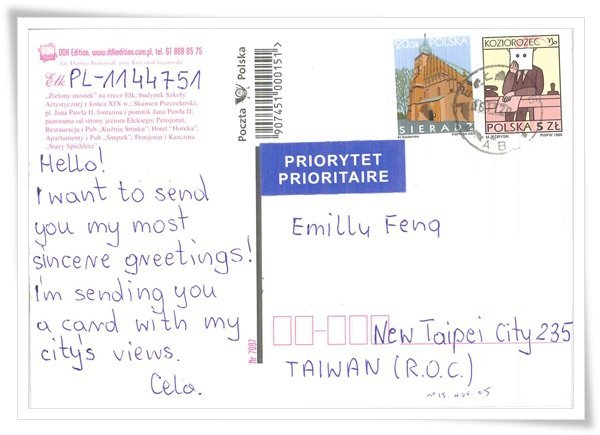 DDK Edition. www.ddkedition.com.pl, tel. 61 868 65 75
Ełk
PL-1144751
"Zielony mostek" na rzece Ełk; budynek Szkoły
Artystycznej z końca XIX w.; Skansen Pszczelarski;
pl. Jana Pawła II, fontanna i pomnik Jana Pawła II;
panorama od strony jeziora Ełckiego; Pensjonat,
Restauracja i Pub „Kuźnia Smaku"; Hotel "Horeka";
Apartamenty i Pub „Smętek"; Pensjonat i Karczma
"Stary Spichlerz"
Hello!
I want to send
you my most
sincere greetings!
I'm sending you
a card with my
city's views.
Cela.
Poczta Polska
9074511000151>
Nr 7097
20 GR POLSKA
SIERADZ
KOZIOROŻEC
POLSKA 5 ZŁ
PRIORYTET
PRIORITAIRE
Emilly Feng
New Taipei City 235
TAIWAN (R.O.C.)